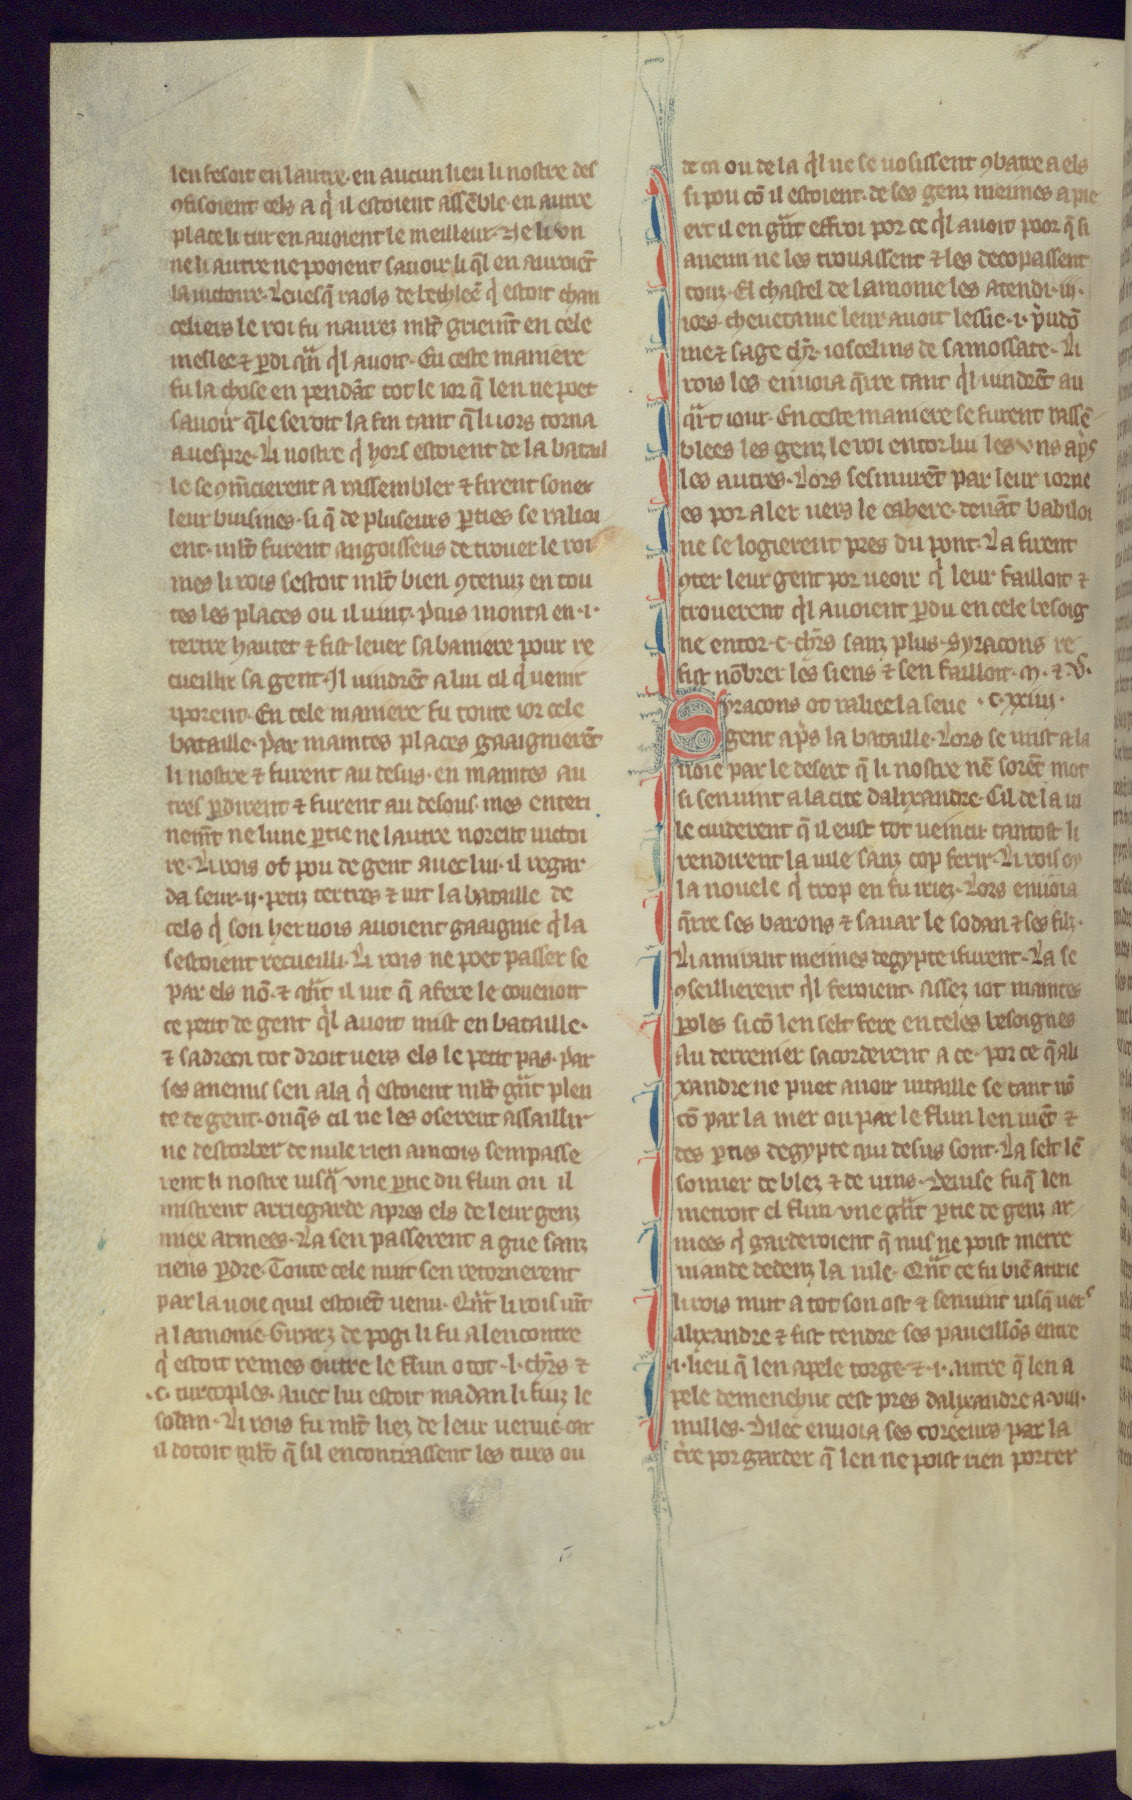 len fesoit en lautre. en aucun lieu li nostre des
ꝯfisoient cels a q̓ il estoient assẽble. en autre
place li tur en auoient le meillour. Ne li vn
ne li autre ne pooient sauoir li q̃l en auroiẽt
la uictoire. Leuesq̃ raols de bethleẽ q̓ estoit chan
celiers le roi fu naurez ml̃t griem̃t en cele
mellee ⁊ ꝑdi q̃nq̃ q̓l auoit. En ceste maniere
fu la chose en pendãt tot le ior q̃ len ne poet
sauoir q̃le seroit la fin tant q̃ li iors torna
a uespre. Li nostre q̓ hors estoient de la batail
le se ꝯm̃cierent a rassembler ⁊ firent soner
leur buisines. si q̃ de pluseurs ꝑties se ralioi
ent. ml̃t furent angoisseus de trouer le roi
mes li rois sestoit ml̃t bien ꝯtenuz en tou
tes les places ou il uint. Puis monta en .i.
tertre hautet ⁊ fist leuer sa baniere pour re
cueillir sa gent. Il uindrẽt a lui cil q̓ uenir
iporent. En cele maniere fu toute ior cele
bataille. Par maintes places gaaignierẽt
li nostre ⁊ furent au desus. en maintes au
tres ꝑdirent ⁊ furent au desous. mes enteri
nem̃t ne lune ꝑtie ne lautre norent uictoi
re. Li rois ot pou de gent auec lui. il regar
da seur .ii. petiz tertres ⁊ uit la bataille de
cels q̓ son hernois auoient gaaignie q̓ la
sestoient recueilli. Li rois ne poet passer se
par els nõ. ⁊ q̃nt il uit q̃ a fere le couenoit
ce petit de gent q̓l auoit mist en bataille.
⁊ sadreca tot droit uers els le petit pas. Par
ses anemis sen ala q̓ estoient ml̃t g̃nt plen
te de gent. onq̃s cil ne les oserent assaillir
ne destorber de nule rien aincois sempasse
rent li nostre iusq̃ vne ꝑtie du flun ou il
mistrent arriegarde apres els de leur genz
miex armees. La sen passerent a gue sanz
riens ꝑdre. Toute cele nuit sen retornerent
par la uoie quil estoiẽt uenu. Q̃nt li rois uĩt
a lamonie. Girarz de pogi li fu alencontre
q̓ estoit remes outre le flun o tot .l. chr̃s ⁊
.c. turcoples. auec lui estoit madan li fuiz le
sodan. Li rois fu ml̃t liez de leur uenue. car
il dotoit ml̃t q̃ sil encontrassent les turs ou
de ca ou de la q̓l ne se uosissent ꝯbatre a els
si pou cõ il estoient. de ses genz meimes a pie
ert il en g̃nt effroi por ce q̓l auoit poor q̃ si
aucun ne les trouassent ⁊ les decopassent
touz. El chastel de lamonie les atendi .iii.
iors. cheuetaine leur auoit lessie .i. p̓udõ
me ⁊ sage chr̃. ioscelins de samossate. Li
rois les enuoia q̃rre tant q̓l uindrẽt au
q̃rt iour. En ceste maniere se furent rassẽ
blees les genz le roi entor lui les vns ap̃s
les autres. Lors sesmurẽt par leur iorne
es por aler uers le cahere. deuãt babiloi
ne se logierent pres du pont. La firent
ꝯter leur gent por ueoir q̓ leur failloit ⁊
trouerent q̓l auoient ꝑdu en cele besoig
ne entor .c. chr̃s sanz plus. Syracons re
fist nõbrer les siens ⁊ sen failloit .m. ⁊ .v.c
Syracons ot raliee la seue .c.xxiiii.
gent ap̃s la bataille. Lors se mist a la
uoie par le desert q̃ li nostre nẽ sorẽt mot
si sen uint a la cite dalixandre. Cil de la ui
le cuiderent q̃ il eust tot ueincu tantost li
rendirent la uile sanz cop ferir. Li rois oy
la nouele q̓ trop en fu iriez. Lors enuoia
q̃rre ses barons ⁊ sauar le sodan ⁊ ses filz.
Li amirant meimes degypte ifurent. La se
ꝯseillierent q̓l feroient. assez iot maintes
ꝑoles si cõ len selt fere en teles besoignes
Au derrenier sacorderent a ce. por ce q̃ ali
xandre ne puet auoir uitaille se tant nõ
cõ par la mer ou par le flun len uiẽt ⁊
des ꝑties degypte qui desus sont. La selt lẽ
somier de blez ⁊ de uins. Deuise fu q̃ len
metroit el flun vne g̃nt ꝑtie de genz ar
mees q̓ garderoient q̃ nus ne poist metre
uiande dedenz la uile. Q̃nt ce fu biẽ atirie
li rois mut a tot son ost ⁊ sen uint iusq̃ uers
alixandre ⁊ fist tendre ses paueillõs entre
.i. lieu q̃ len apele torge. ⁊ .i. autre q̃ len a
pele demenehut cest pres dalixandre a .viii.
milles. Dilec enuoia ses coreeurs par la
t̓re por garder q̃ len ne poist rien porter